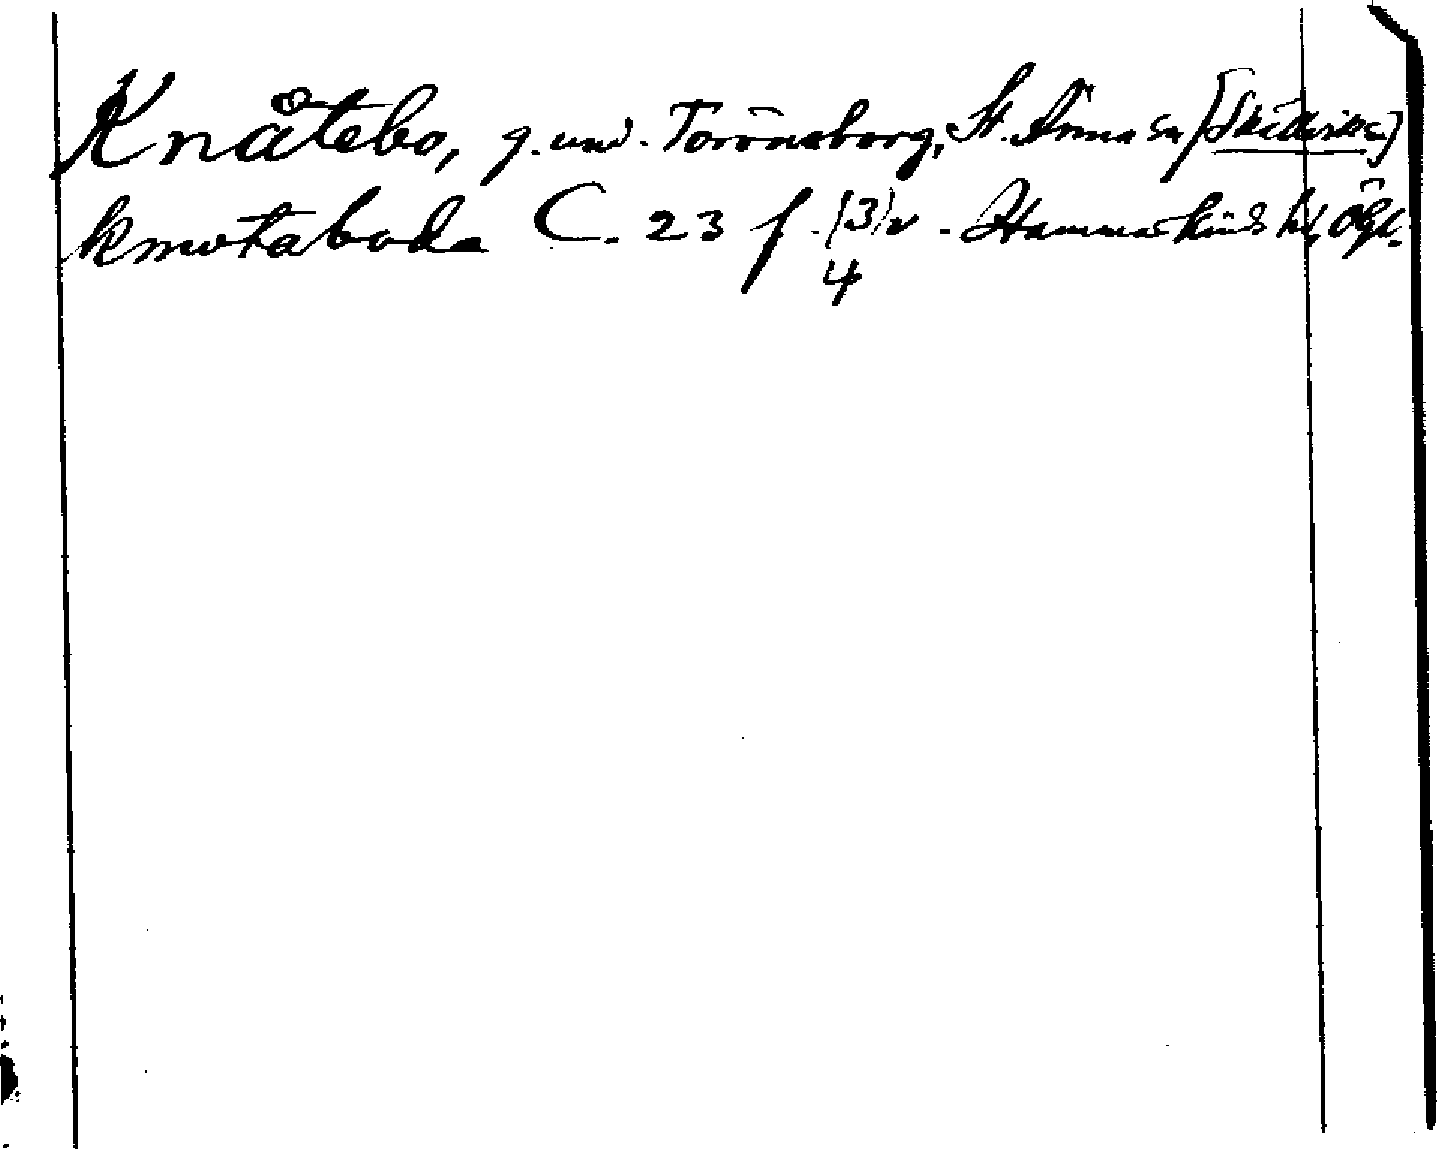 Knåtebo, g. und. Torönsborg, St. Anna sn [Skällvik sn]
knwtaboda C. 23 f. (3)v. Hammarkinds hd, Ögl.
4